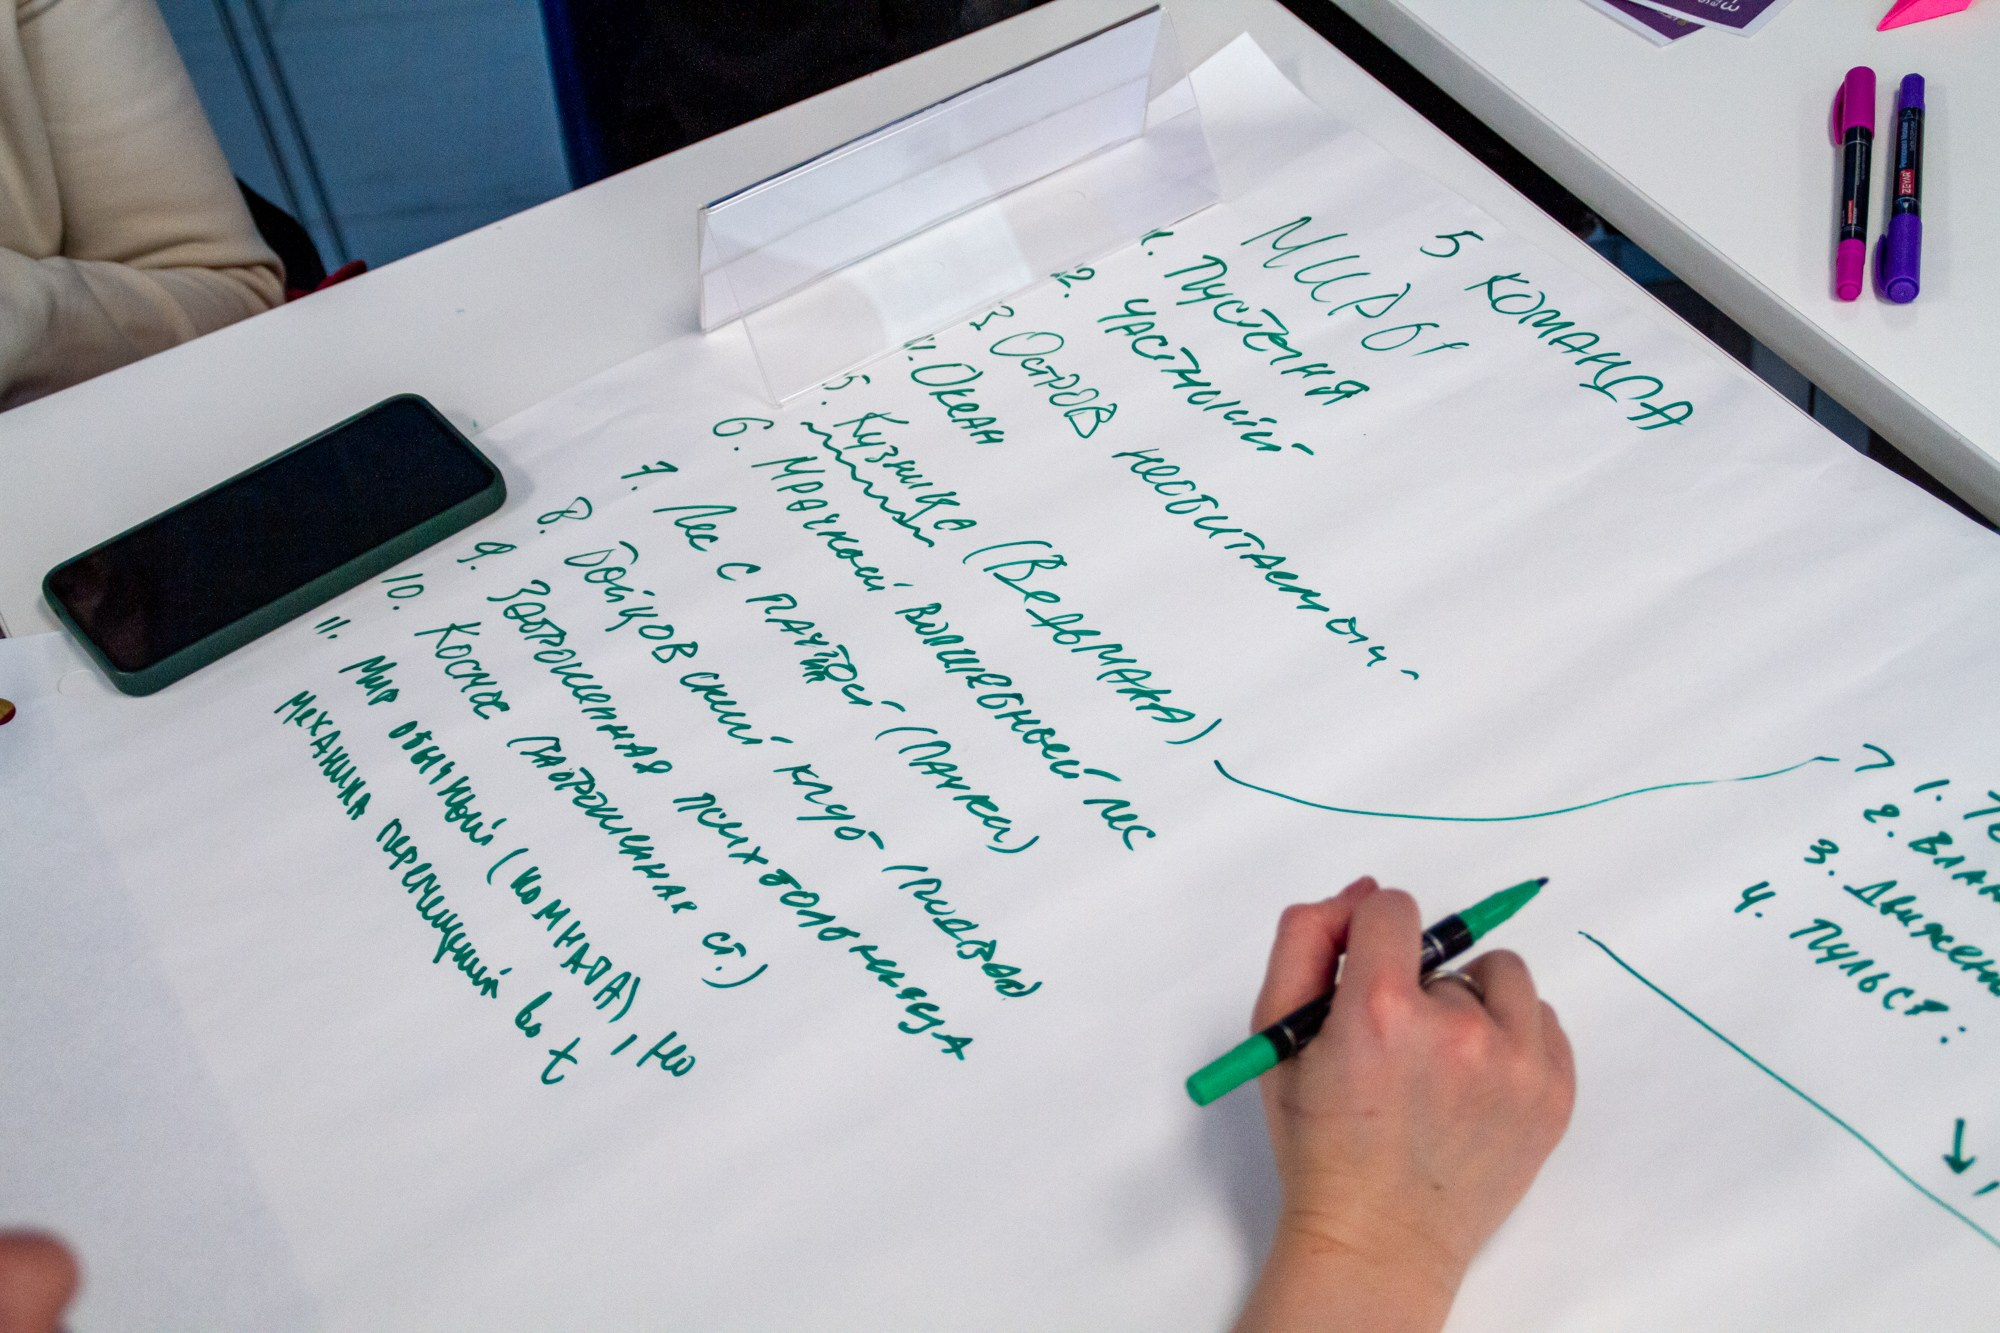 5 КОМАНДА
МИРЫ
1. ПУСТЫНЯ
2. ЧАСТНЫЙ
3 ОСТРОВ НЕОБИТАЕМЫЙ
4. ОКЕАН
5. КУЗНИЦА (ВЕДЬМАКА)
6. МРАЧНЫЙ ВОЛШЕБНЫЙ ЛЕС
7. ЛЕС С ПАУТИНОЙ (ПАУКИ)
8. БОЙЦОВСКИЙ КЛУБ (ПОДВАЛ)
9. ЗАБРОШЕННАЯ ПСИХБОЛЬНИЦА
10. КОСМОС (ЗАБРОШЕННАЯ СТ.)
11. МИР ОБЫЧНЫЙ (КОМНАТА), НО
МЕХАНИКА ПЕРЕМЕЩЕНИЙ ВО t
1.
2. ВЛАЖ
3. ДВИЖЕНИ
4. ПУЛЬСА:
ZEYAR